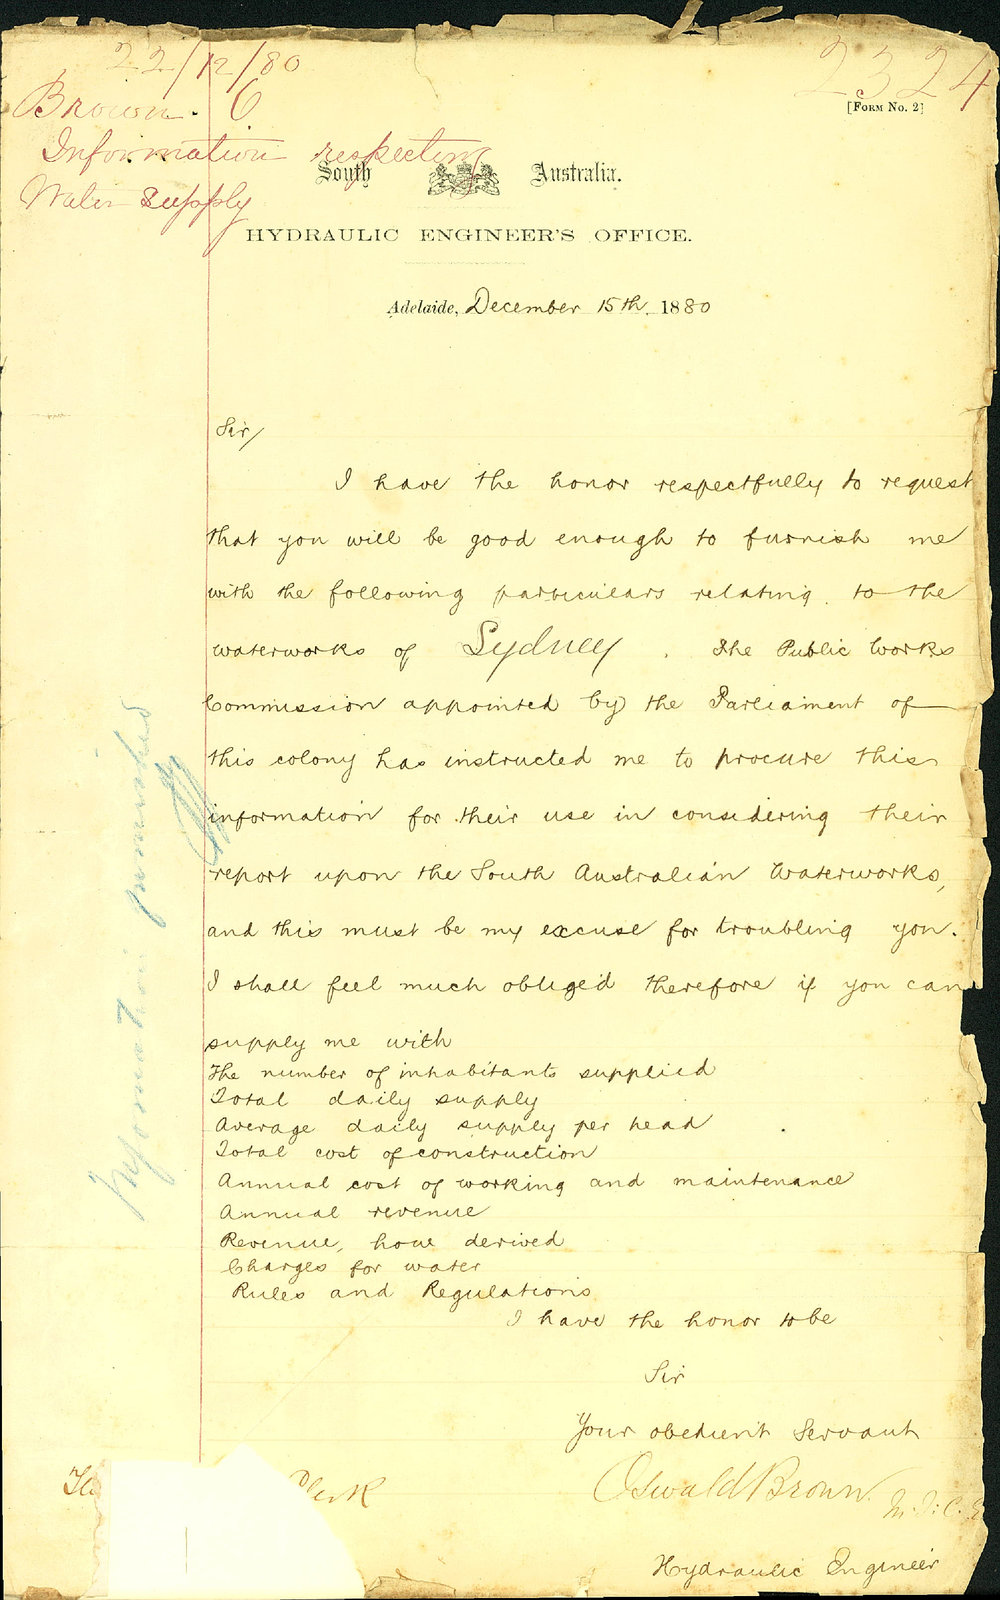 22/12/80
2324
Brown. O
[FORM No. 2]
Information respecting
South Australia.
Water Supply
HYDRAULIC ENGINEER'S OFFICE.
Adelaide, December 15th. 1880
Sir/
I have the honor respectfully to request
that you will be good enough to furnish me
with the following particulars relating to the
waterworks of Sydney. The Public Works
Commission appointed by the Parliament of
this colony has instructed me to procure this
information for their use in considering their
report upon the South Australian Waterworks,
and this must be my excuse for troubling you.
I shall feel much obliged therefore if you can
supply me with
The number of inhabitants supplied
Total daily supply
Average daily supply per head
Total cost of construction
Annual cost of working and maintenance
Annual revenue
Revenue, how derived
Charges for water
Rules and Regulations
I have the honor to be
Sir
Your obedient Servant
Oswald Brown. M.I.C.E
Hydraulic Engineer
Clerk
Information furnished